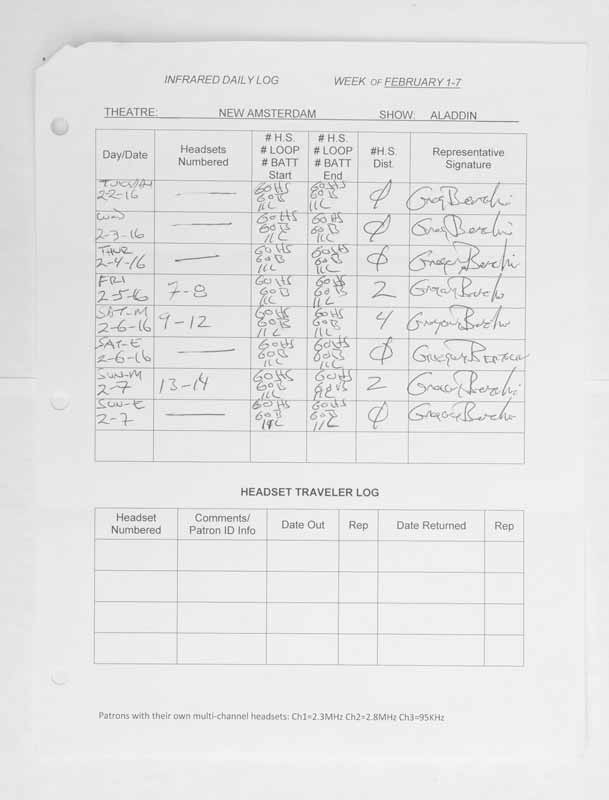 INFRARED DAILY LOG WEEK OF FEBRUARY 1-7
THEATRE: NEW AMSTERDAM SHOW: ALADDIN
Day/Date Headsets Numbered # H.S. # LOOP # BATT Start # H.S. # LOOP # BATT End #H.S. Dist. Representative Signature
TUESDAY 2-2-16 — 60HS 60B 11L 60HS 60B 11L Ø Greg Berchi
WED 2-3-16 — 60HS 60B 11L 60HS 60B 11L Ø
THUR 2-4-16 — 60HS 60B 11L 60HS 60B 11L Ø
FRI 2-5-16 7-8 60HS 60B 11L 60HS 60B 11L 2
SAT-M 2-6-16 9-12 60HS 60B 11L 60HS 60B 11L 4
SAT-E 2-6-16 — 60HS 60B 11L 60HS 60B 11L Ø
SUN-M 2-7 13-14 60HS 60B 11L 60HS 11L 2
SUN-E 2-7 — 60HS 60B 11L 60HS 60B 11L Ø
HEADSET TRAVELER LOG
Headset Numbered Comments/ Patron ID Info Date Out Rep Date Returned Rep
Patrons with their own multi-channel headsets: Ch1=2.3MHz Ch2=2.8MHz Ch3=95KHz